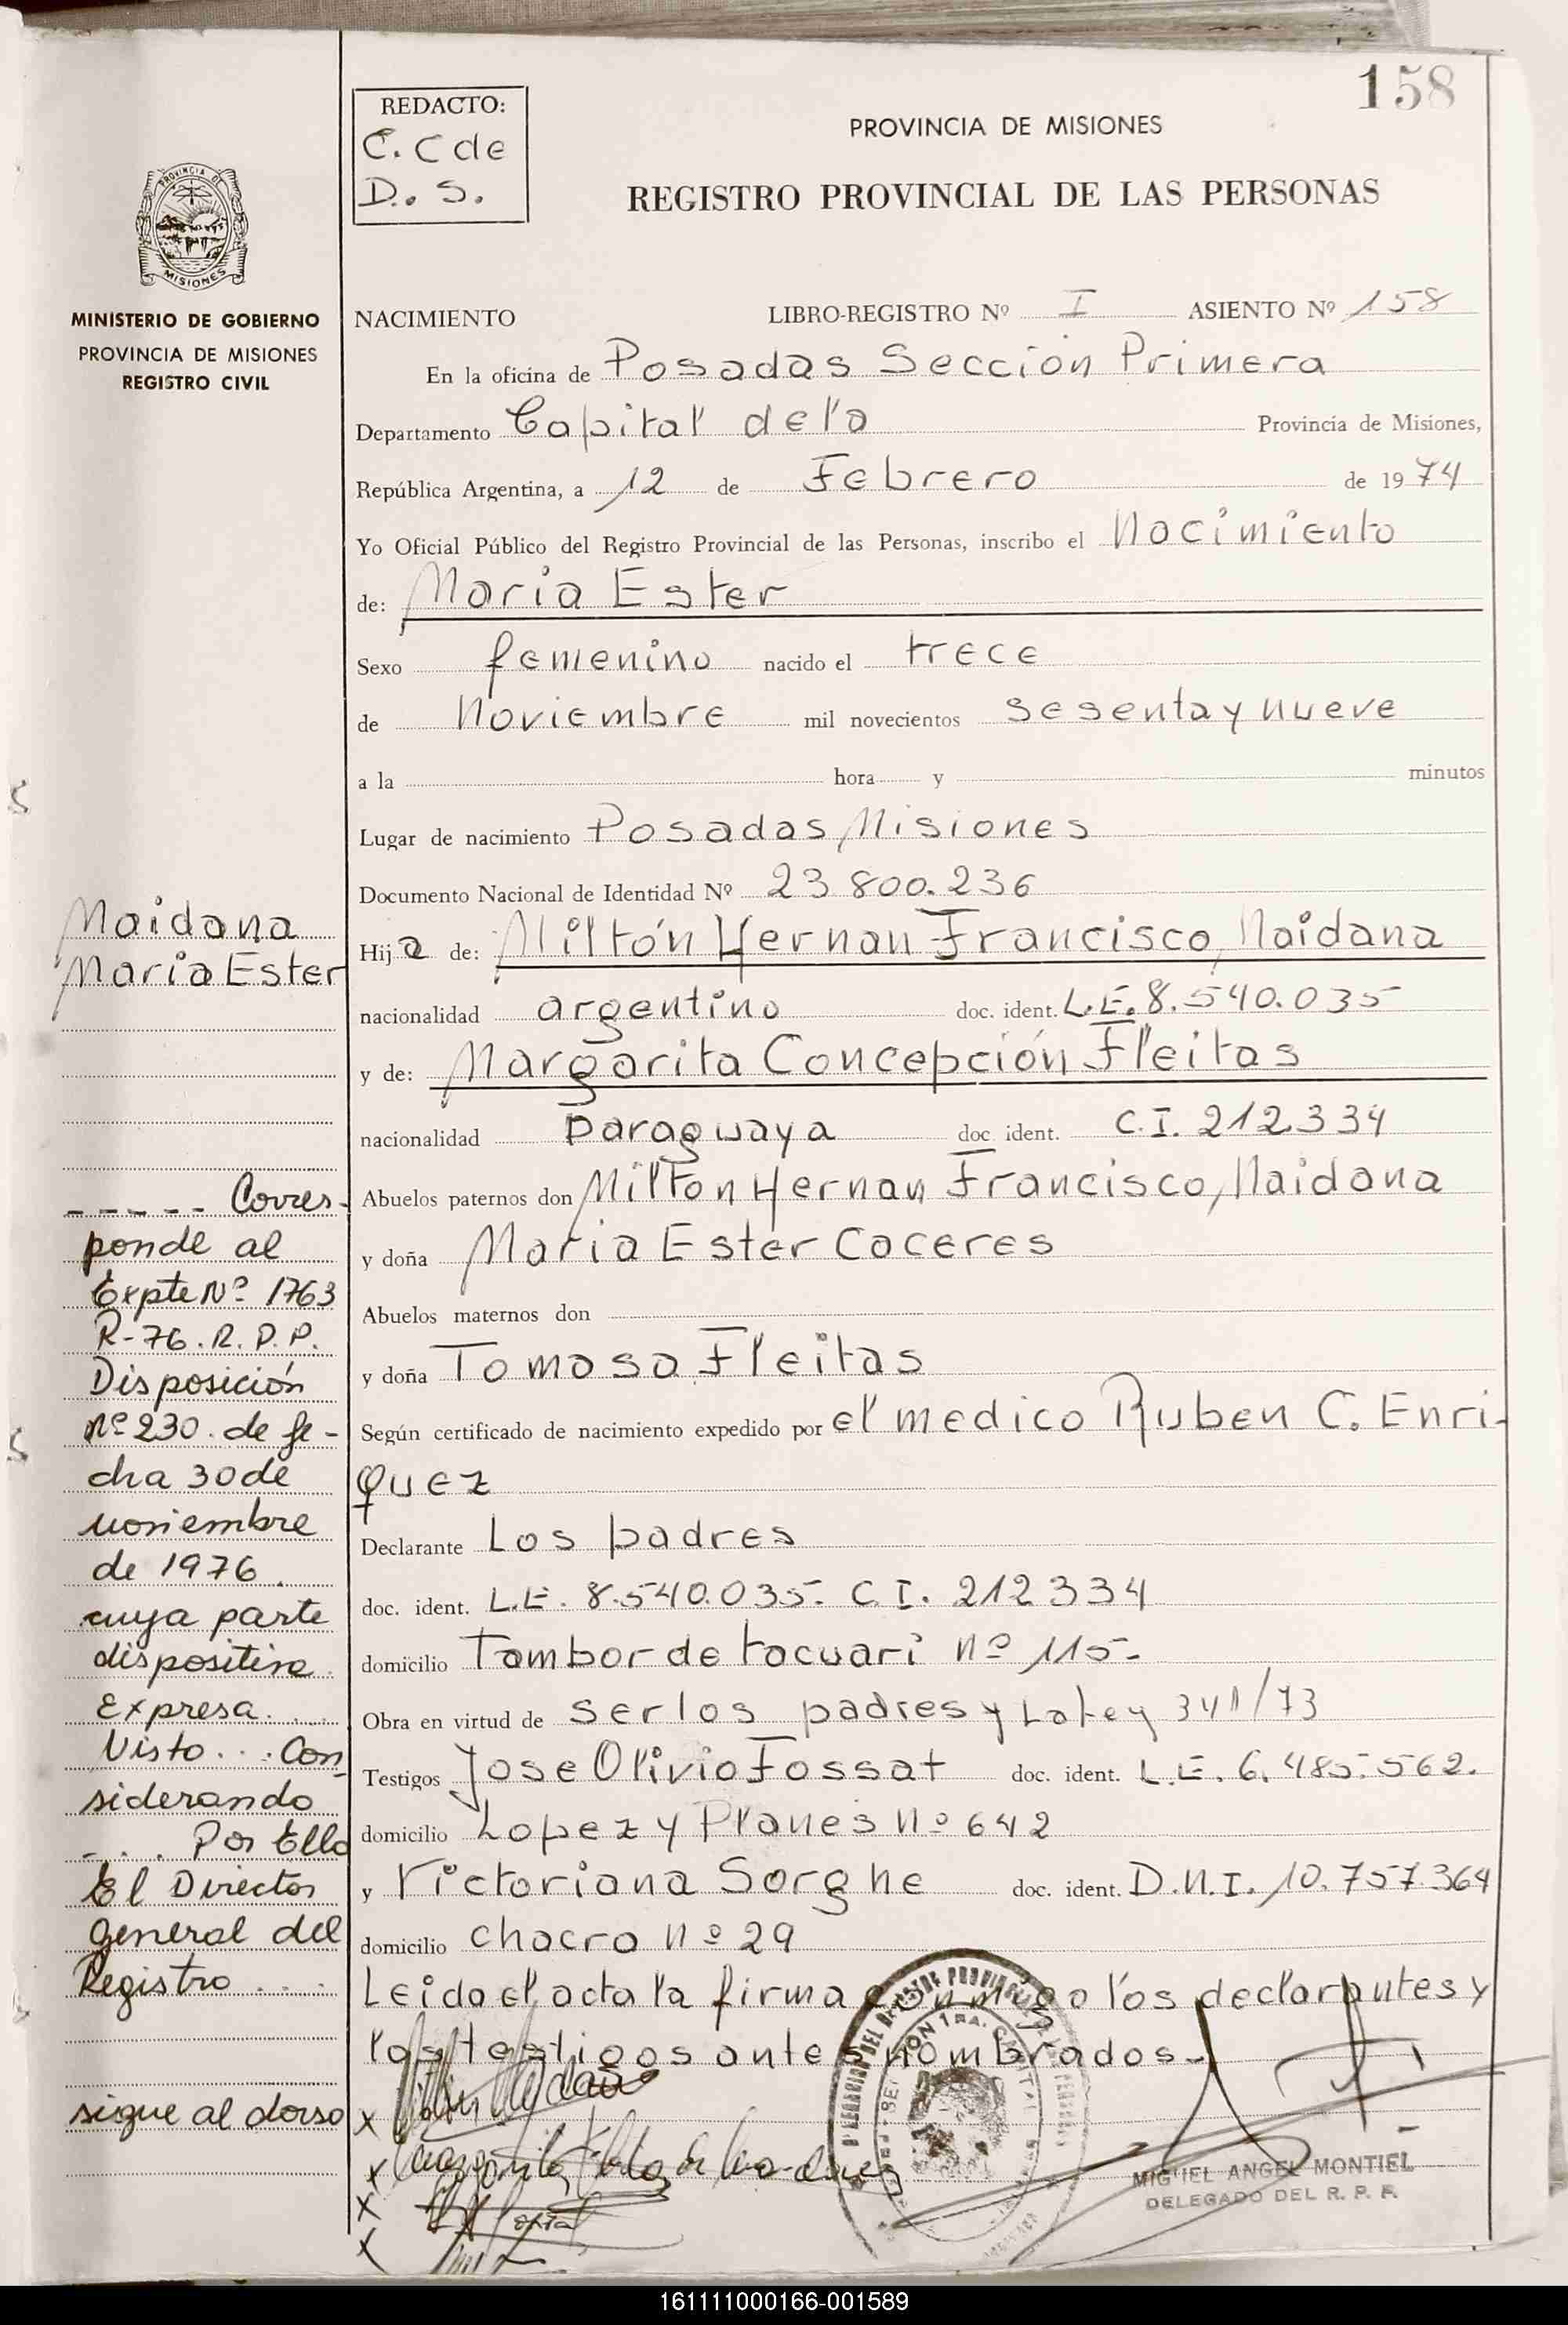 158
REDACTO:
C. C de
D. S.
PROVINCIA DE MISIONES
REGISTRO PROVINCIAL DE LAS PERSONAS
PROVINCIA DE
MISIONES
MINISTERIO DE GOBIERNO
PROVINCIA DE MISIONES
REGISTRO CIVIL
NACIMIENTO LIBRO-REGISTRO Nº I ASIENTO Nº 158
En la oficina de Posadas Sección Primera
Departamento Capital de la Provincia de Misiones,
República Argentina, a 12 de Febrero de 1974
Yo Oficial Público del Registro Provincial de las Personas, inscribo el Nacimiento
de: Maria Ester
Sexo femenino nacido el trece
de Noviembre mil novecientos sesenta y nueve
a la hora y minutos
Lugar de nacimiento Posadas, Misiones
Documento Nacional de Identidad Nº 23 800.236
Hija de: Miltón Hernan Francisco, Maidana
nacionalidad argentino doc. ident. L.E. 8.540.035
y de: Margarita Concepción Fleitas
nacionalidad paraguaya doc ident. C.I. 212.334
Abuelos paternos don Milton Hernan Francisco, Maidana
y doña Maria Ester Caceres
Abuelos maternos don
y doña Tomasa Fleitas
Según certificado de nacimiento expedido por el medico Ruben C. Enri-
quez
Declarante Los padres
doc. ident. L.E. 8.540.035- C.I. 212334
domicilio Tambor de tacuari nº 115-
Obra en virtud de ser los padres y La ley 341/73
Testigos Jose Olivio Fossat doc. ident. L.E. 6.485.562.
domicilio Lopez y Planes nº 642
y Victoriana Sorghe doc. ident. D.N.I. 10.757.364
domicilio chacra nº 29
Leida el acta la firma conmigo los declarantes y
los testigos antes nombrados-
x
x
x
x
MIGUEL ANGEL MONTIEL
DELEGADO DEL R. P. P.
Maidana
Maria Ester
----- Corres-
ponde al
Expte Nº 1763
R-76. R. P. P.
Disposición
nº 230. de fe-
cha 30 de
noviembre
de 1976.
cuya parte
dispositiva
Expresa....
Visto... Con
siderando
... Por Ello
El Director
general del
Registro...
sigue al dorso
161111000166-001589